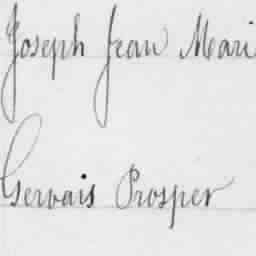 Joseph Jean Mari
Gervais Prosper